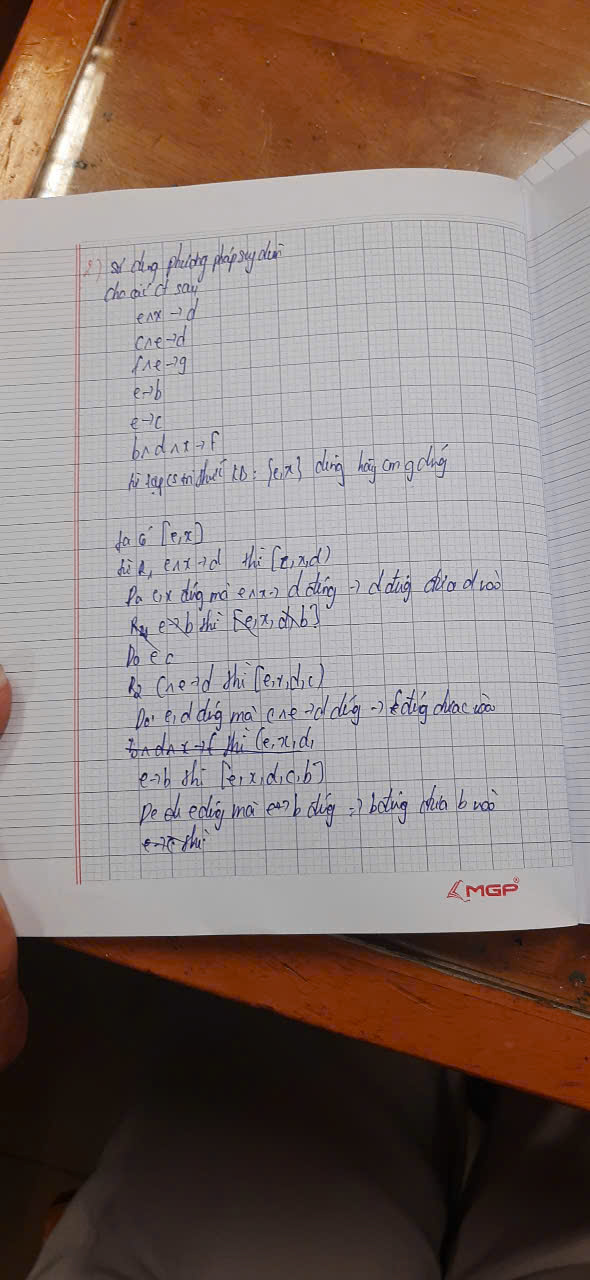 2) sử dụng phương pháp suy diễn
cho các ct sau
e∧x→d
c∧e→d
f∧e→g
e→b
e→c
b∧d∧x→f
từ tập cs tri thức KD: {e,x} đúng hãy cm g đúng
ta có [e,x]
từ R, e∧x→d thì [e,x,d)
Do e,x đúng mà e∧x→ d đúng → d đúng đưa d vào
e→b thì [e,x,d,b]
Do e c
R2 c∧e→d thì [e,x,d,c)
Do e,d đúng mà c∧e→d đúng → đúng đưa c vào
b∧d∧x→f thì [e,x,d,
e→b thì [e,x,d,c,b]
Do e đúng mà e→b đúng => b đúng đưa b vào
e→c thì
MGP